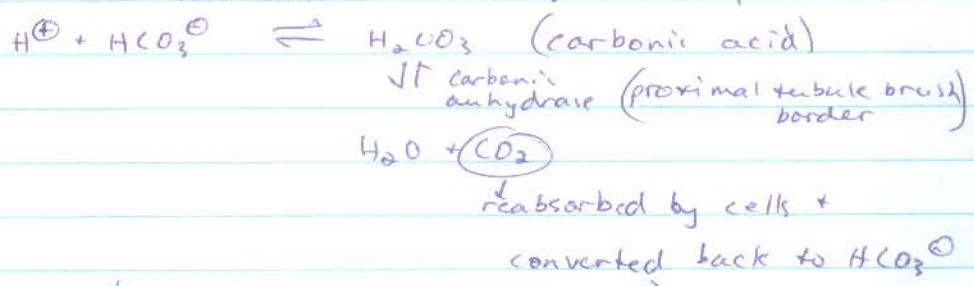 H⊕ + HCO₃⊖ ⇌ H₂CO₃ (carbonic acid)
↓↑ carbonic
anhydrase (proximal tubule brush
border)
H₂O + CO₂
↓
reabsorbed by cells +
converted back to HCO₃⊖